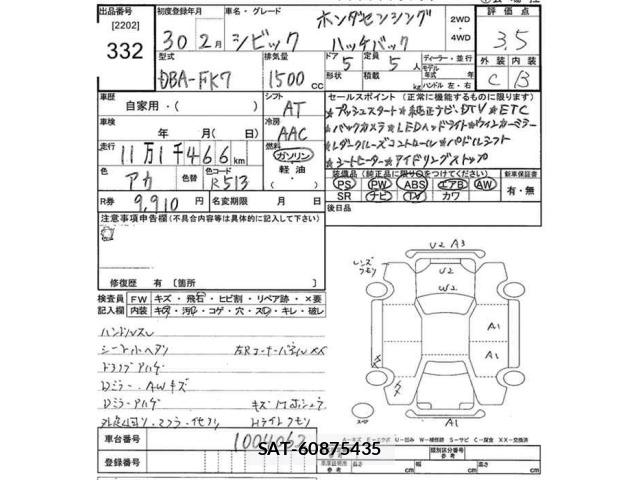 出品番号 初度登録年月 車名・グレード ホンダセンシング 2WD 評価点
[2202] 4WD
332 30 2月 シビック ハッチバック 3.5
型式 排気量 ドア 5 定員 5人 ディーラー・並行 外装 内装
DBA-FK7 1500cc 形状 積載 kg モデル年式 年式 C B
ハンドル 左・右
車歴 自家用・( ) シフト AT セールスポイント(正常に機能するものに限ります)
車検 年 月(日) 冷房 AAC ★プッシュスタート★純正ナビ、DTV★ETC
走行 11万1千466km 燃料 ガソリン 軽油 ★バックカメラ★LEDヘッドライト★ウインカーミラー
★レーダークルーズコントロール★パドルシフト
色 アカ 色替 色コード R513 ★シートヒーター★アイドリングストップ
装備品(純正品に限り○をつけてください) 新車保証書
PS PW ABS エアB AW 有・無
R券 9,910円 名変期限 月 日 SR ナビ TV カワ
注意事項申告欄(不具合内容等は具体的に記入して下さい) 後日品
修復歴 有 [箇所 ]
U2 A3
レンズクモリ
U2
W2
A1
A1
A1
検査員記入欄 FW キズ・飛石・ヒビ割・リペア跡・×要
内装 キズ・汚レ・コゲ・穴・スレ・キレ・破レ
ハンドルスレ
シートヘタリ
Dミラー、AWキズ
Dミラーアハゲ
Hライトクモリ
スペア
車台番号 1004062
登録番号
SAT-60875435
類別区分番号